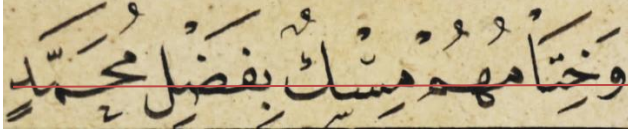 وَخِتَامُهُمْ مِسْكٌ بِفَضْلِ مُحَمَّدٍ